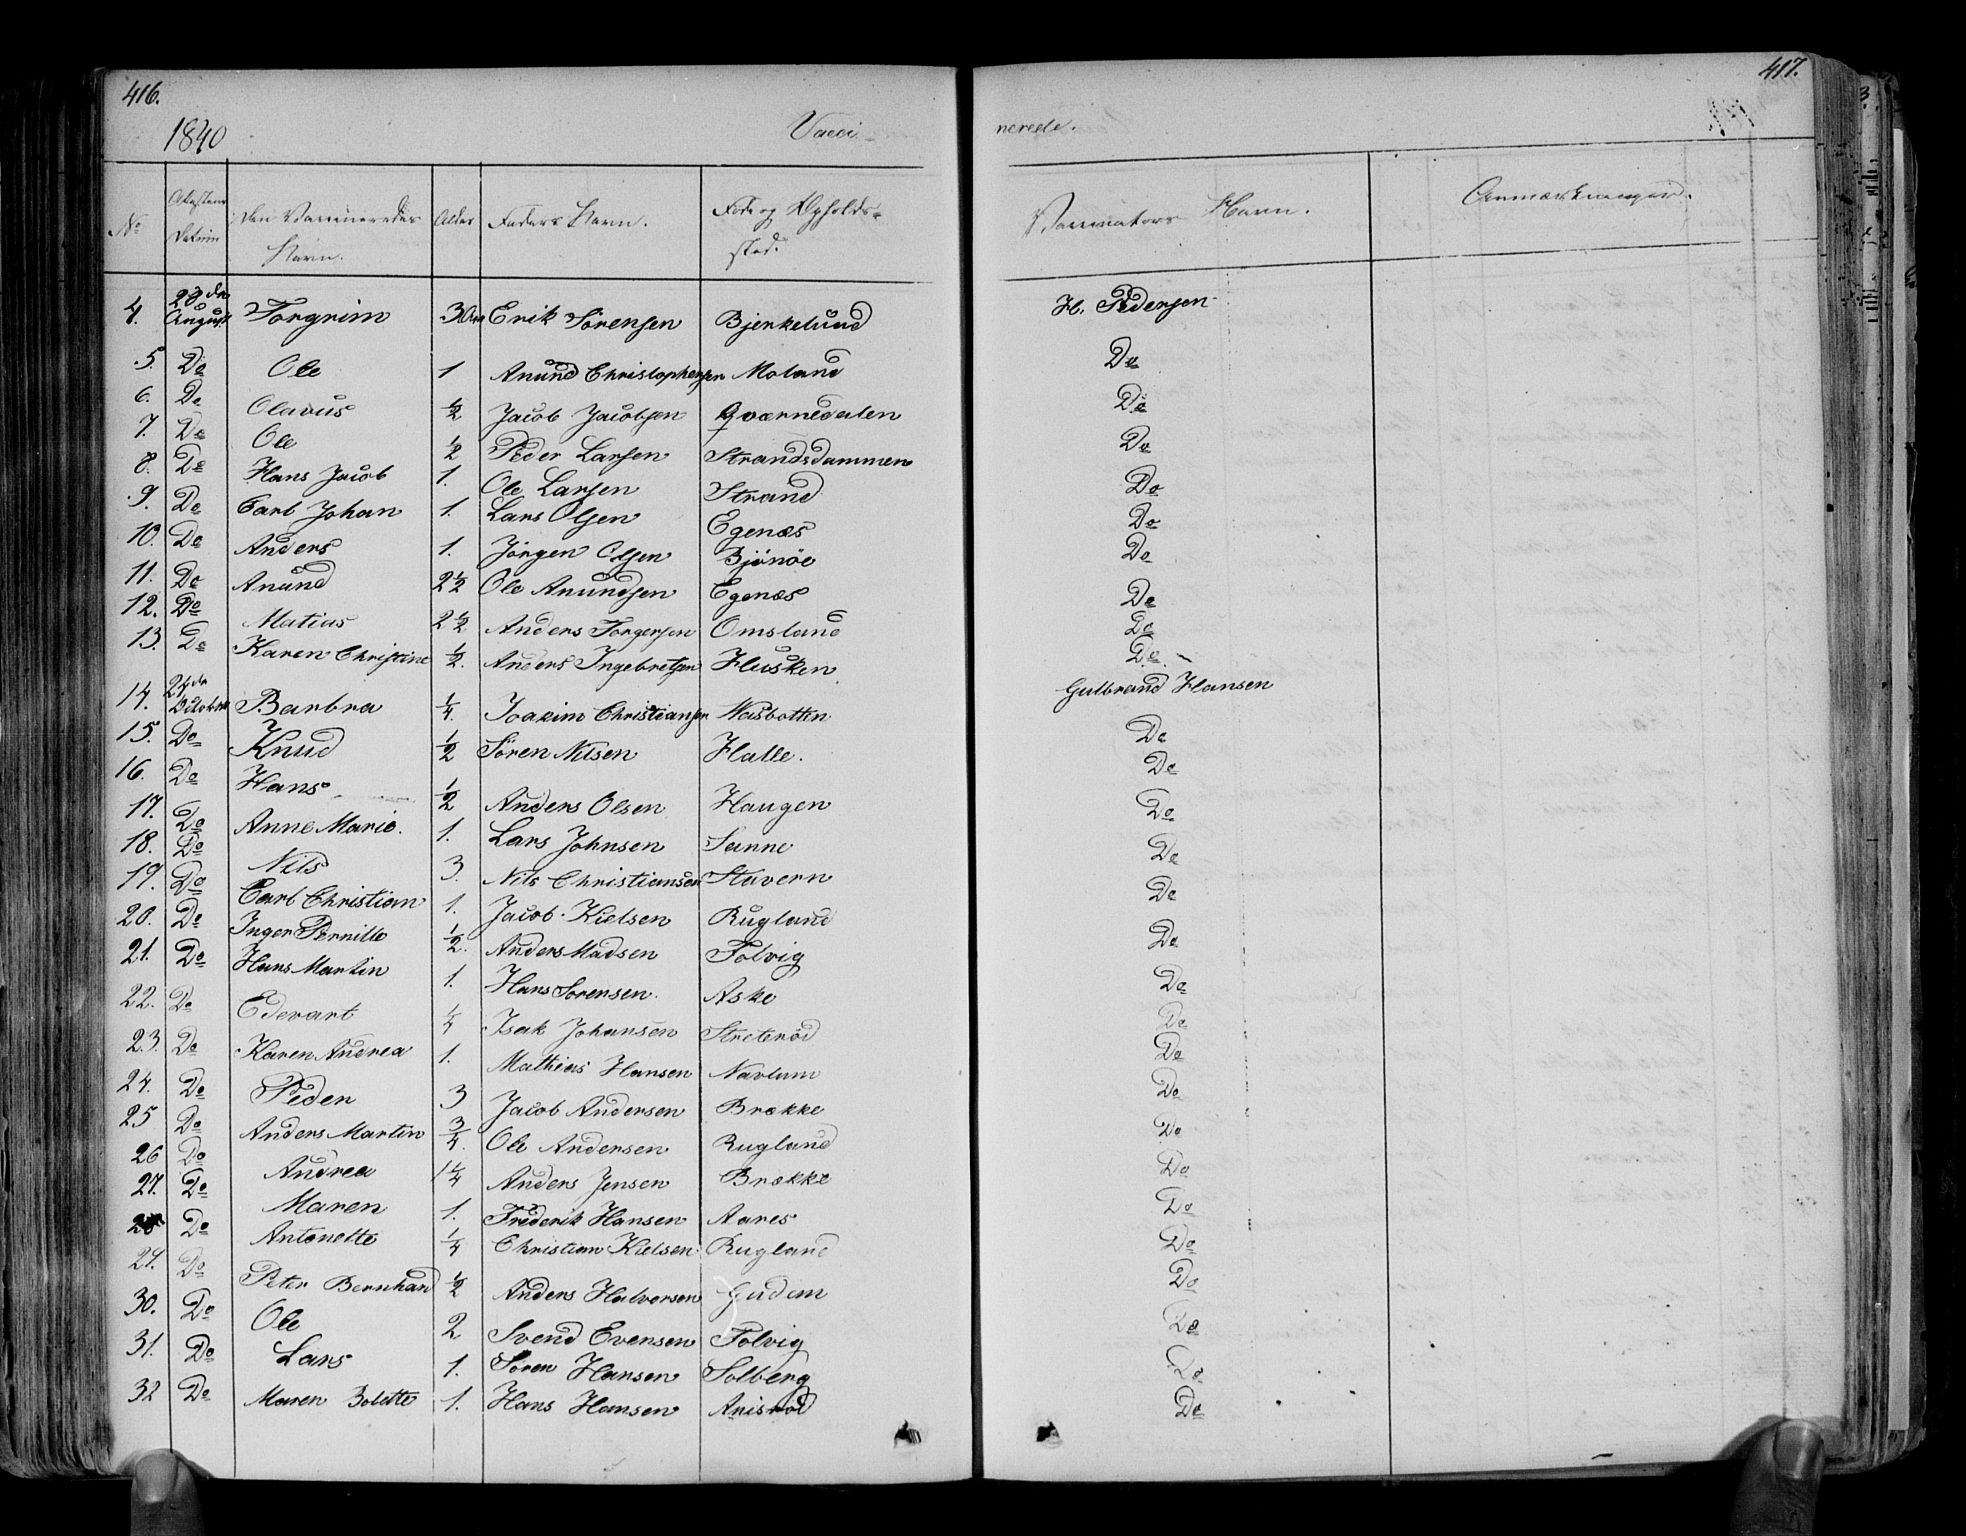 416.
1840
Vacci-
No
Attestens Datum
Den Vaccineredes Navn.
Alder
Faders Navn.
Føde og Opholds-sted.
4. 28de August Torgrim 3 Aar Erik Sörensen Bjerkelund
5. Do Ole 1 Anund Christophersen Moland
6. Do Olavus 1/2 Jacob Jacobsen Qværnedalen
7. Do Ole 1/2 Peder Larsen Strandsdammen
8. Do Hans Jacob 1. Ole Larsen Strand
9. Do Carl Johan 1. Lars Olsen Egenæs
10. Do Anders 1. Jörgen Olsen Bjönöe
11. Do Anund 2 1/2 Ole Anundsen Egenæs
12. Do Matias 2 1/2 Anders Torgersen Omsland
13. Do Karen Christine 1/2. Anders Ingebretsen Flusken
14. 24de Octobr Barbra 1/4. Joakim Christiansen Næsbotten
15. Do Knud 1/2 Sören Nilsen Halle.
16. Do Hans 1/2 Anders Olsen Haugen
17. Do Anne Marie. 1. Lars Johnsen Sanne
18. Do Nils 3. Nils Christiansen Stavern
19. Do Carl Christian 1. Jacob Kielsen Rugland
20. Do Inger Pernille 1/2. Anders Madsen Tolvig
21. Do Hans Martin 1. Hans Sorensen. Aske
22. Do Edevart 1/4 Isak Johansen Streteröd
23. Do Karen Andrea 1. Mathias Hansen Navlum
24. Do Peder 3 Jacob Andersen Brække
25 Do Anders Martin 3/4. Ole Andersen Rugland
26 Do Andrea 1 1/4 Anders Jensen Brække
27. Do Maren 1. Frederik Hansen Aares
28 Do Antonette 1/4 Christian Kielsen Rugland
29. Do Peter Bernhard 1/2 Anders Halvorsen Gudem
30. Do Ole 2 Svend Evensen Tolvig
31. Do Lars 1. Sören Hansen Solberg
32 Do Maren Bolette 1. Hans Hansen Anisröd
417.
nerede.
Vaccinators Navn.
Anmærkninger.
H. Pedersen
Do
Do
Do
Do
Do
Do
Do
Do
Do
Gulbrand Hansen
Do
Do
Do
Do
Do
Do
Do
Do
Do
Do
Do
Do
Do
Do
Do
Do
Do
Do